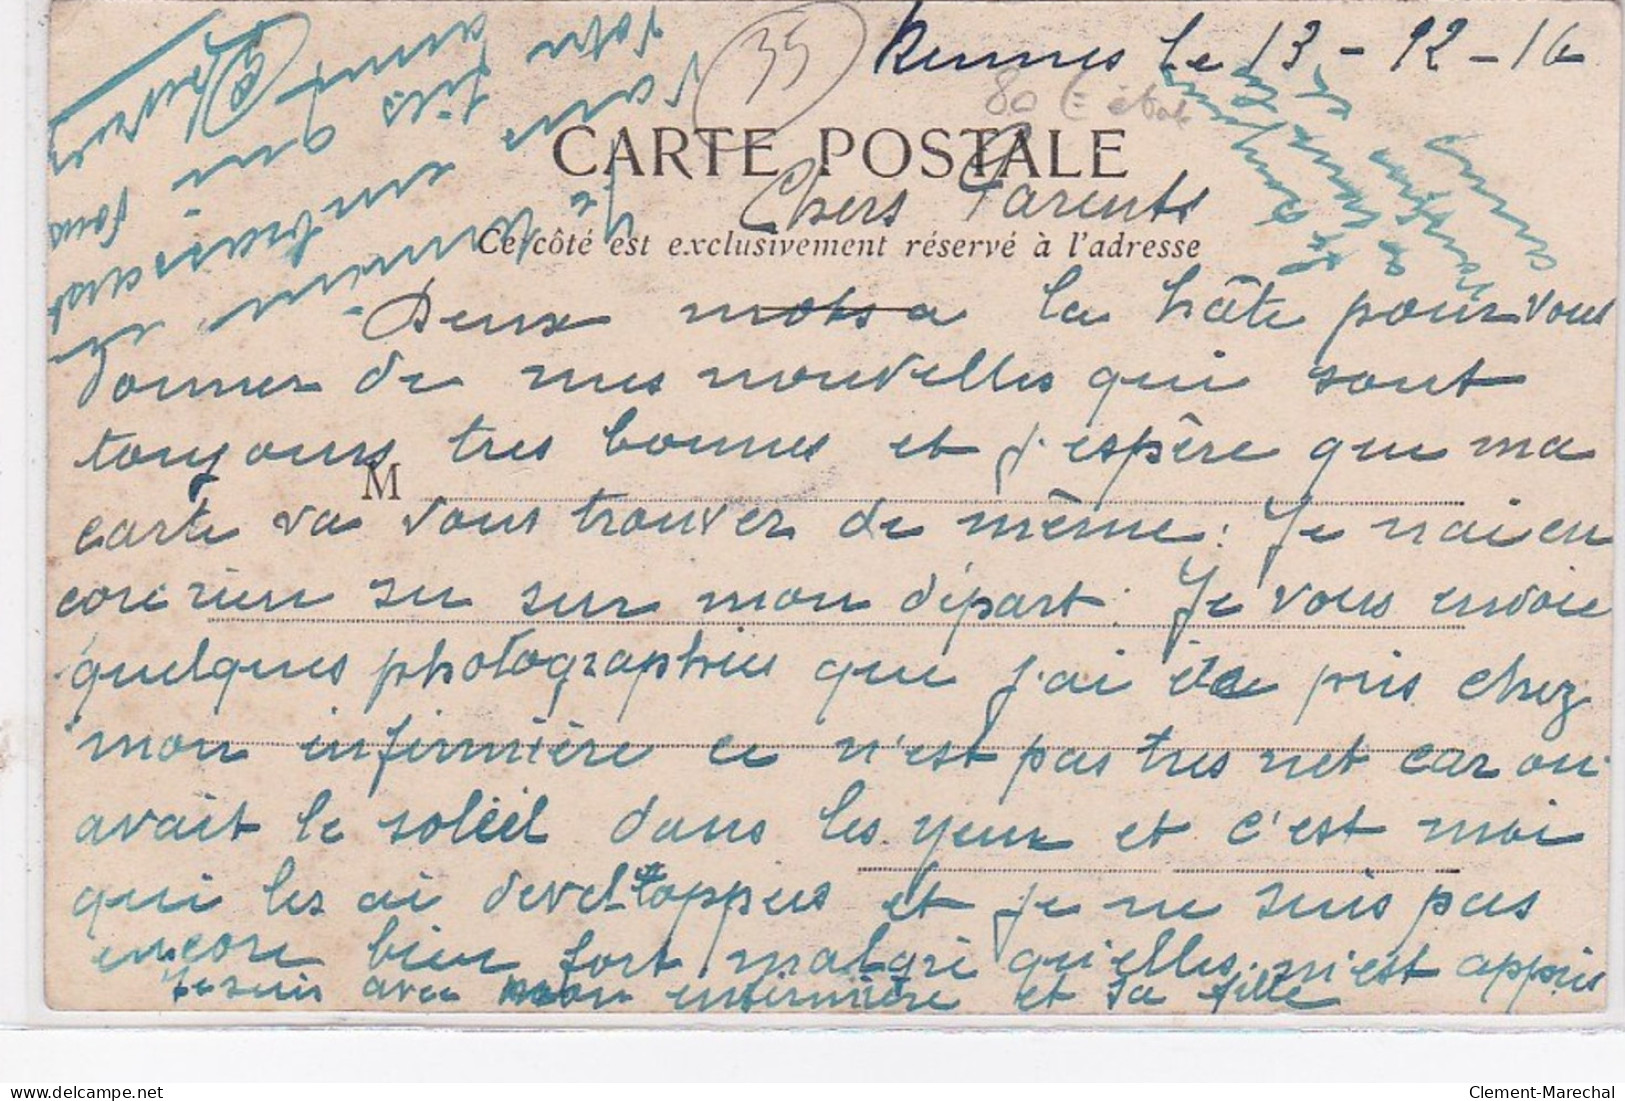 Rennes le 13-12-16
35
80 € étoile
CARTE POSTALE
Chers Parents
Ce côté est exclusivement réservé à l'adresse
Deux mots a la hâte pour vous
donner de mes nouvelles qui sont
toujours tres bonnes et j'espère que ma
M
carte va vous trouver de même. Je n'ai en
core rien su sur mon départ. Je vous envoie
quelques photographies que j'ai pris chez
mon infirmière ce n'est pas tres net car on
avait le soleil dans les yeux et c'est moi
qui les ai developpees et je ne suis pas
encore bien fort malgré qu'elles m'est appris
Je suis avec mon infirmière et sa fille
Je
termine en
vous embrassant
votre fils qui vous
aime
Clement-Marechal